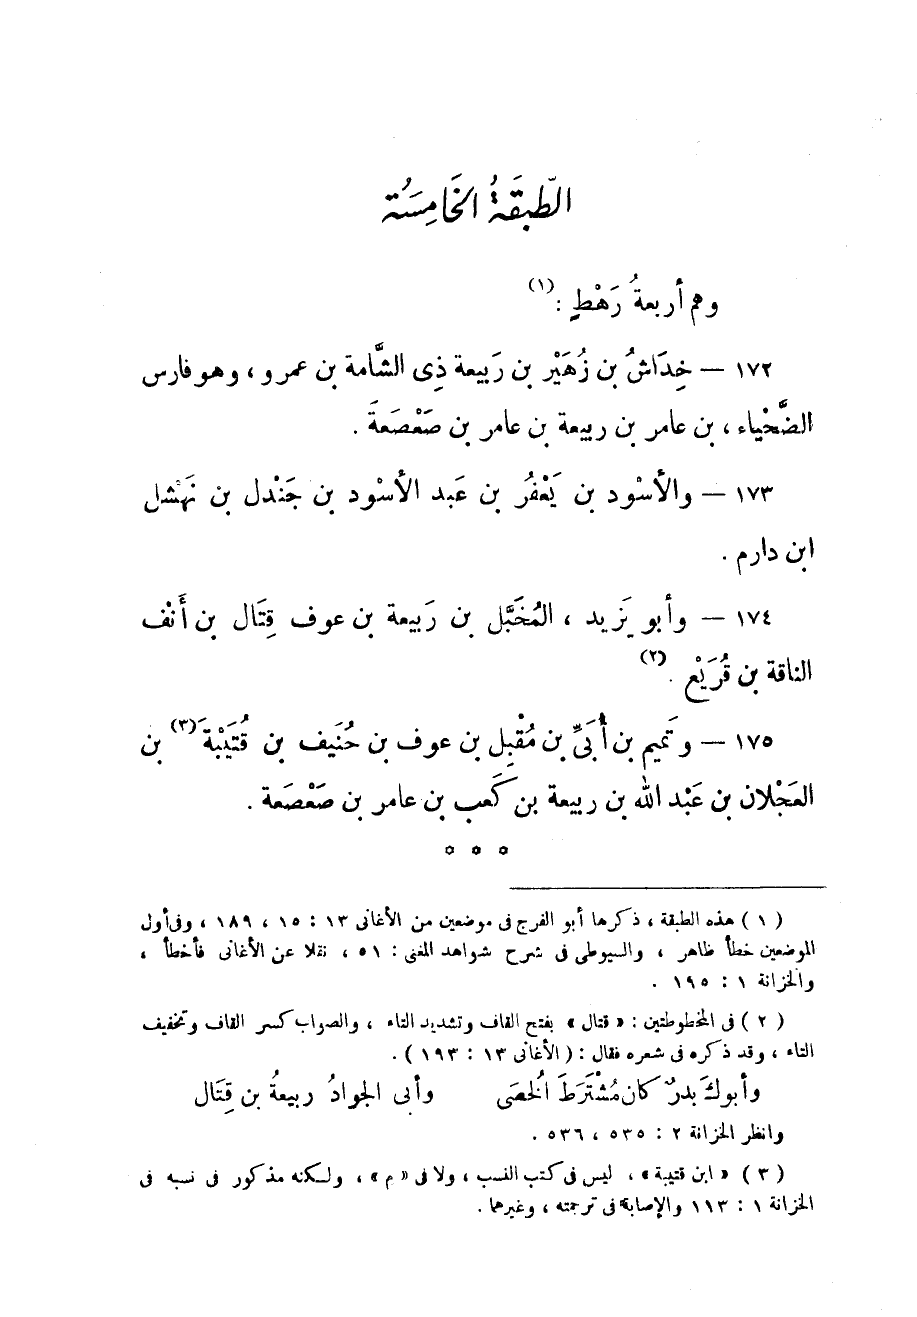 الطّبَقَةُ الخَامِسَةُ
وهم أربعةُ رَهْطٍ :(١)
١٧٢ — خِدَاشُ بن زُهَيْر بن رَبيعة ذِى الشَّامة بن عمرو ، وهو فارس
الضَّحْياء ، بن عامر بن ربيعة بن عامر بن صَعْصَعةَ .
١٧٣ — والأسْود بن يَعْفُر بن عَبد الأسْود بن جَنْدل بن نَهشل
ابن دارم .
١٧٤ — وأبو يَزيد ، المُخَبَّل بن رَبيعة بن عوف قِتَال بن أَنْف
الناقة بن قُرَيْع .(٢)
١٧٥ — وتَميم بن أُبَىِّ بن مُقْبِل بن عوف بن حُنَيف بن قُتَيْبَة(٣) بن
العَجْلان بن عَبْد الله بن ربيعة بن كَعب بن عامر بن صَعْصَعة .
* * *
( ١ ) هذه الطبقة ، ذكرها أبو الفرج فى موضعين من الأغانى ١٣ : ١٥ ، ١٨٩ ، وفى أول
الموضعين خطأ ظاهر ، والسيوطى فى شرح شواهد المغنى : ٥١ ، نقلا عن الأغانى فأخطأ ،
والخزانة ١ : ١٩٥ .
( ٢ ) فى المخطوطتين : « قتال » بفتح القاف وتشديد التاء ، والصواب كسر القاف وتخفيف
التاء ، وقد ذكره فى شعره فقال : ( الأغانى ١٣ : ١٩٣ ) .
وأبوكَ بدرٌ كان مُشْتَرَطَ الخُصَى وأبى الجوادُ ربيعةُ بن قِتَال
وانظر الخزانة ٢ : ٥٣٥ ، ٥٣٦ .
( ٣ ) « ابن قتيبة » ، ليس فى كتب النسب ، ولا فى « م » ، ولكنه مذكور فى نسبه فى
الخزانة ١ : ١١٣ والإصابة فى ترجمته ، وغيرها .